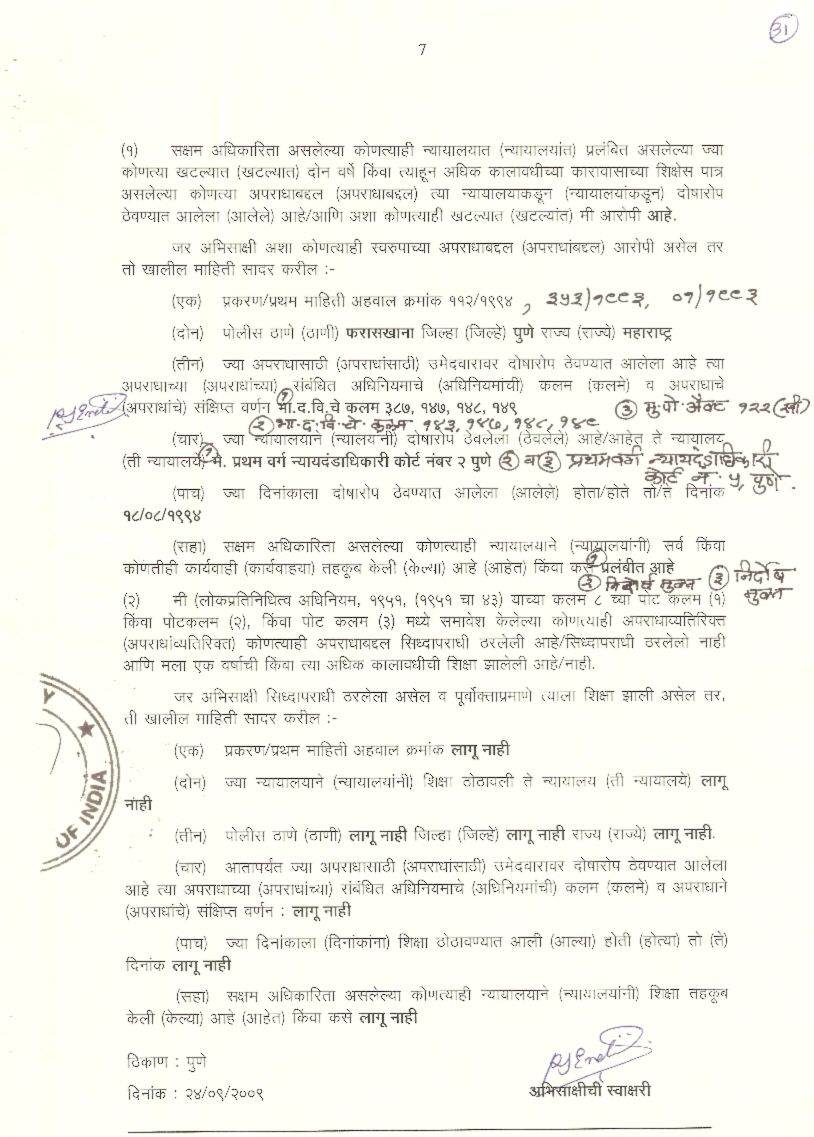 31
7
(१) सक्षम अधिकारिता असलेल्या कोणत्याही न्यायालयात (न्यायालयांत) प्रलंबित असलेल्या ज्या
कोणत्या खटल्यात (खटल्यात) दोन वर्षे किंवा त्याहून अधिक कालावधीच्या कारावासाच्या शिक्षेस पात्र
असलेल्या कोणत्या अपराधाबद्दल (अपराधाबद्दल) त्या न्यायालयाकडून (न्यायालयांकडून) दोषारोप
ठेवण्यात आलेला (आलेले) आहे/आणि अशा कोणत्याही खटल्यात (खटल्यांत) मी आरोपी आहे.
जर अभिसाक्षी अशा कोणत्याही स्वरुपाच्या अपराधाबद्दल (अपराधांबद्दल) आरोपी असेल तर
तो खालील माहिती सादर करील :-
(एक) प्रकरण/प्रथम माहिती अहवाल क्रमांक ११२/१९९४ , ३५३/१९९३, ०१/१९९३
(दोन) पोलीस ठाणे (ठाणी) फरासखाना जिल्हा (जिल्हे) पुणे राज्य (राज्ये) महाराष्ट्र
(तीन) ज्या अपराधासाठी (अपराधांसाठी) उमेदवारावर दोषारोप ठेवण्यात आलेला आहे त्या
अपराधाच्या (अपराधांच्या) संबंधित अधिनियमाचे (अधिनियमांची) कलम (कलमे) व अपराधाचे
(अपराधांचे) संक्षिप्त वर्णन ① भा.द.वि.चे कलम ३८७, १४७, १४८, १४९ ③ मु.पो.अॅक्ट १२२(सी)
② भा.द.वि.चे कलम १४३, १४७, १४८, १४९
(चार) ज्या न्यायालयाने (न्यालयांनी) दोषारोप ठेवलेला (ठेवलेले) आहे/आहेत ते न्यायलय
(ती न्यायालये) ① मे. प्रथम वर्ग न्यायदंडाधिकारी कोर्ट नंबर २ पुणे ② व ③ प्रथमवर्ग न्यायदंडाधिकारी
कोर्ट नं. ५, पुणे.
(पाच) ज्या दिनांकाला दोषारोप ठेवण्यात आलेला (आलेले) होता/होते तो/ते दिनांक
१८/०८/१९९४
(सहा) सक्षम अधिकारिता असलेल्या कोणत्याही न्यायालयाने (न्यायालयांनी) सर्व किंवा
कोणतीही कार्यवाही (कार्यवाहया) तहकूब केली (केल्या) आहे (आहेत) किंवा कसे ① प्रलंबीत आहे
② निर्दोष मुक्त ③ निर्दोष मुक्त
(२) मी (लोकप्रतिनिधित्व अधिनियम, १९५१, (१९५१ चा ४३) याच्या कलम ८ च्या पोट कलम (१)
किंवा पोटकलम (२), किंवा पोट कलम (३) मध्ये समावेश केलेल्या कोणत्याही अपराधाव्यतिरिक्त
(अपराधांव्यतिरिक्त) कोणत्याही अपराधाबद्दल सिध्दापराधी ठरलेली आहे/सिध्दापराधी ठरलेलो नाही
आणि मला एक वर्षाची किंवा त्या अधिक कालावधीची शिक्षा झालेली आहे/नाही.
जर अभिसाक्षी सिध्दापराधी ठरलेला असेल व पूर्वोक्ताप्रमाणे त्याला शिक्षा झाली असेल तर,
ती खालील माहिती सादर करील :-
(एक) प्रकरण/प्रथम माहिती अहवाल क्रमांक लागू नाही
(दोन) ज्या न्यायालयाने (न्यायालयांनी) शिक्षा ठोठावली ते न्यायालय (ती न्यायालये) लागू
नाही
(तीन) पोलीस ठाणे (ठाणी) लागू नाही जिल्हा (जिल्हे) लागू नाही राज्य (राज्ये) लागू नाही.
OF INDIA
(चार) आतापर्यंत ज्या अपराधासाठी (अपराधांसाठी) उमेदवारावर दोषारोप ठेवण्यात आलेला
आहे त्या अपराधाच्या (अपराधांच्या) संबंधित अधिनियमाचे (अधिनियमांची) कलम (कलमे) व अपराधाने
(अपराधांचे) संक्षिप्त वर्णन : लागू नाही
(पाच) ज्या दिनांकाला (दिनांकांना) शिक्षा ठोठावण्यात आली (आल्या) होती (होत्या) तो (ते)
दिनांक लागू नाही
(सहा) सक्षम अधिकारिता असलेल्या कोणत्याही न्यायालयाने (न्यायालयांनी) शिक्षा तहकूब
केली (केल्या) आहे (आहेत) किंवा कसे लागू नाही
ठिकाण : पुणे
दिनांक : २४/०९/२००९
अभिसाक्षीची स्वाक्षरी